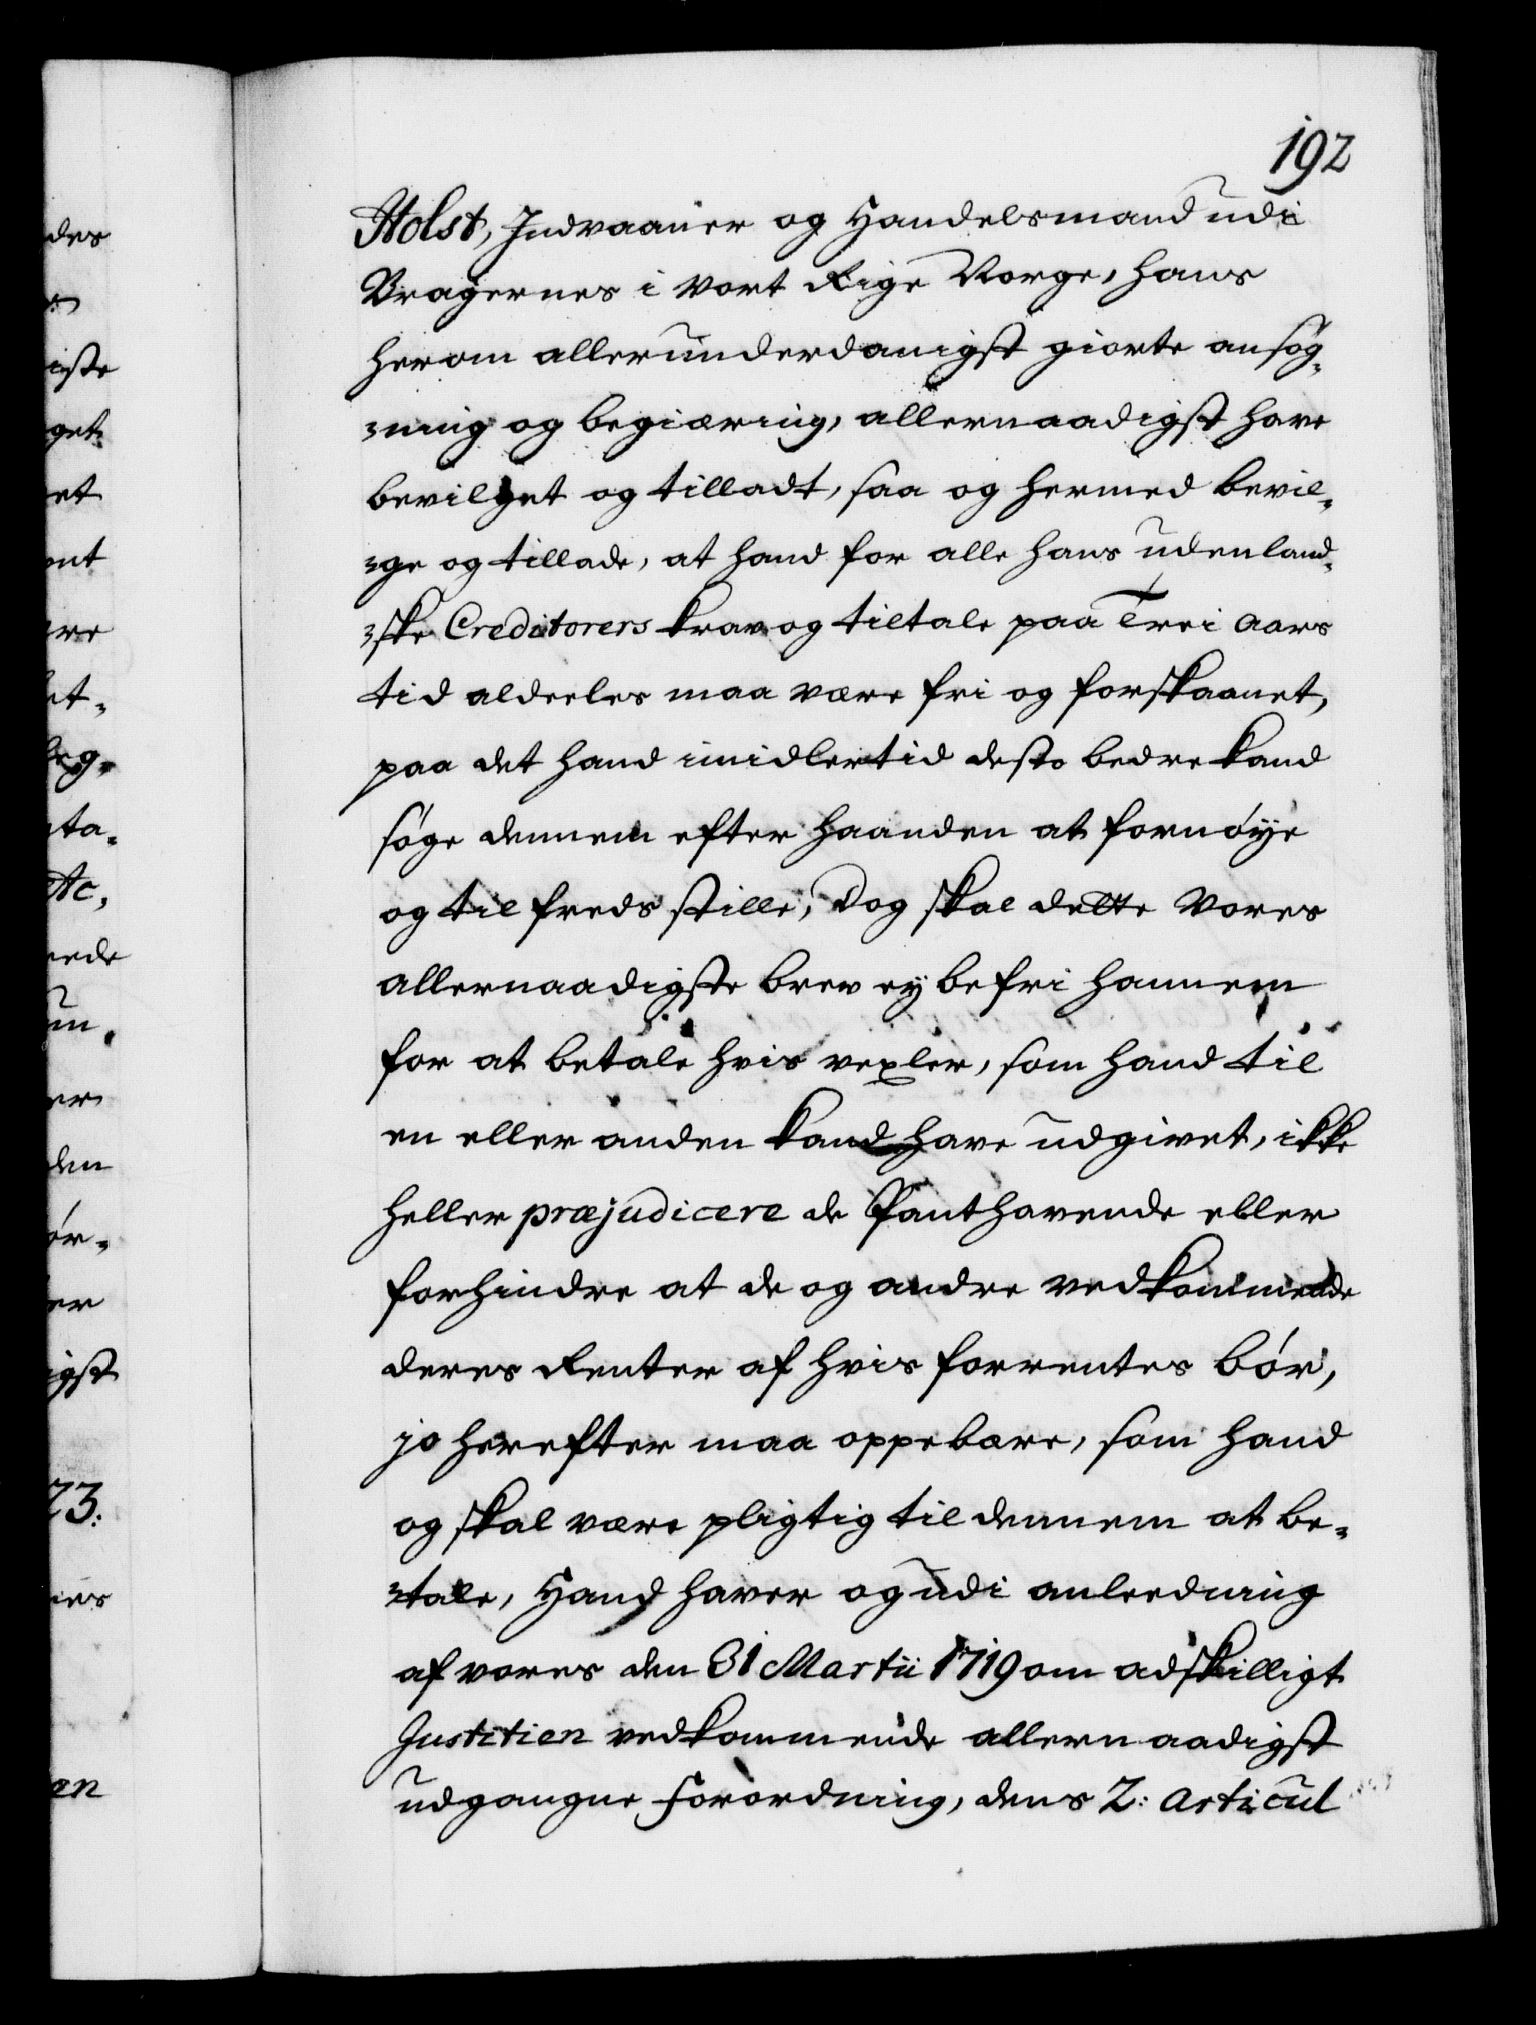 192
Holst, Indvaaner og Handelsmand udi
Bragernes i Vort Rige Norge, hans
herom allerunderdanigst giorte ansøg-
-ning og begiæring, allernaadigst have
bevilget og tilladt, saa og hermed bevil-
-ge og tillade, at hand for alle hans udenland-
-ske Creditorers krav og tiltale paa Trei Aars
tid aldeeles maa være fri og forskaanet,
paa det hand imidlertid desto bedre kand
søge dennem efter haanden at fornøye
og tilfreds stille, Dog skal dette Vores
allernaadigste brev ey befri hannem
for at betale hvis vexler, som hand til
en eller anden kand have udgivet, ikke
heller præjudicere de Panthavende eller
forhindre at de og andre vedkommende
deres Renter af hvis forrentes bør,
jo herefter maa oppebære, som hand
og skal være pligtig til dennem at be-
-tale, Hand haver og udi anleedning
af vores den 31 Martii 1719 om adskilligt
Justitien vedkommende allernaadigst
udgangne Forordning, dens 2: Articul
des
iste
get-
et
ent
ere
et-
leg-
ta-
Ac,
eede
un-
er
den
ør-
er
igst
23:
nes
en